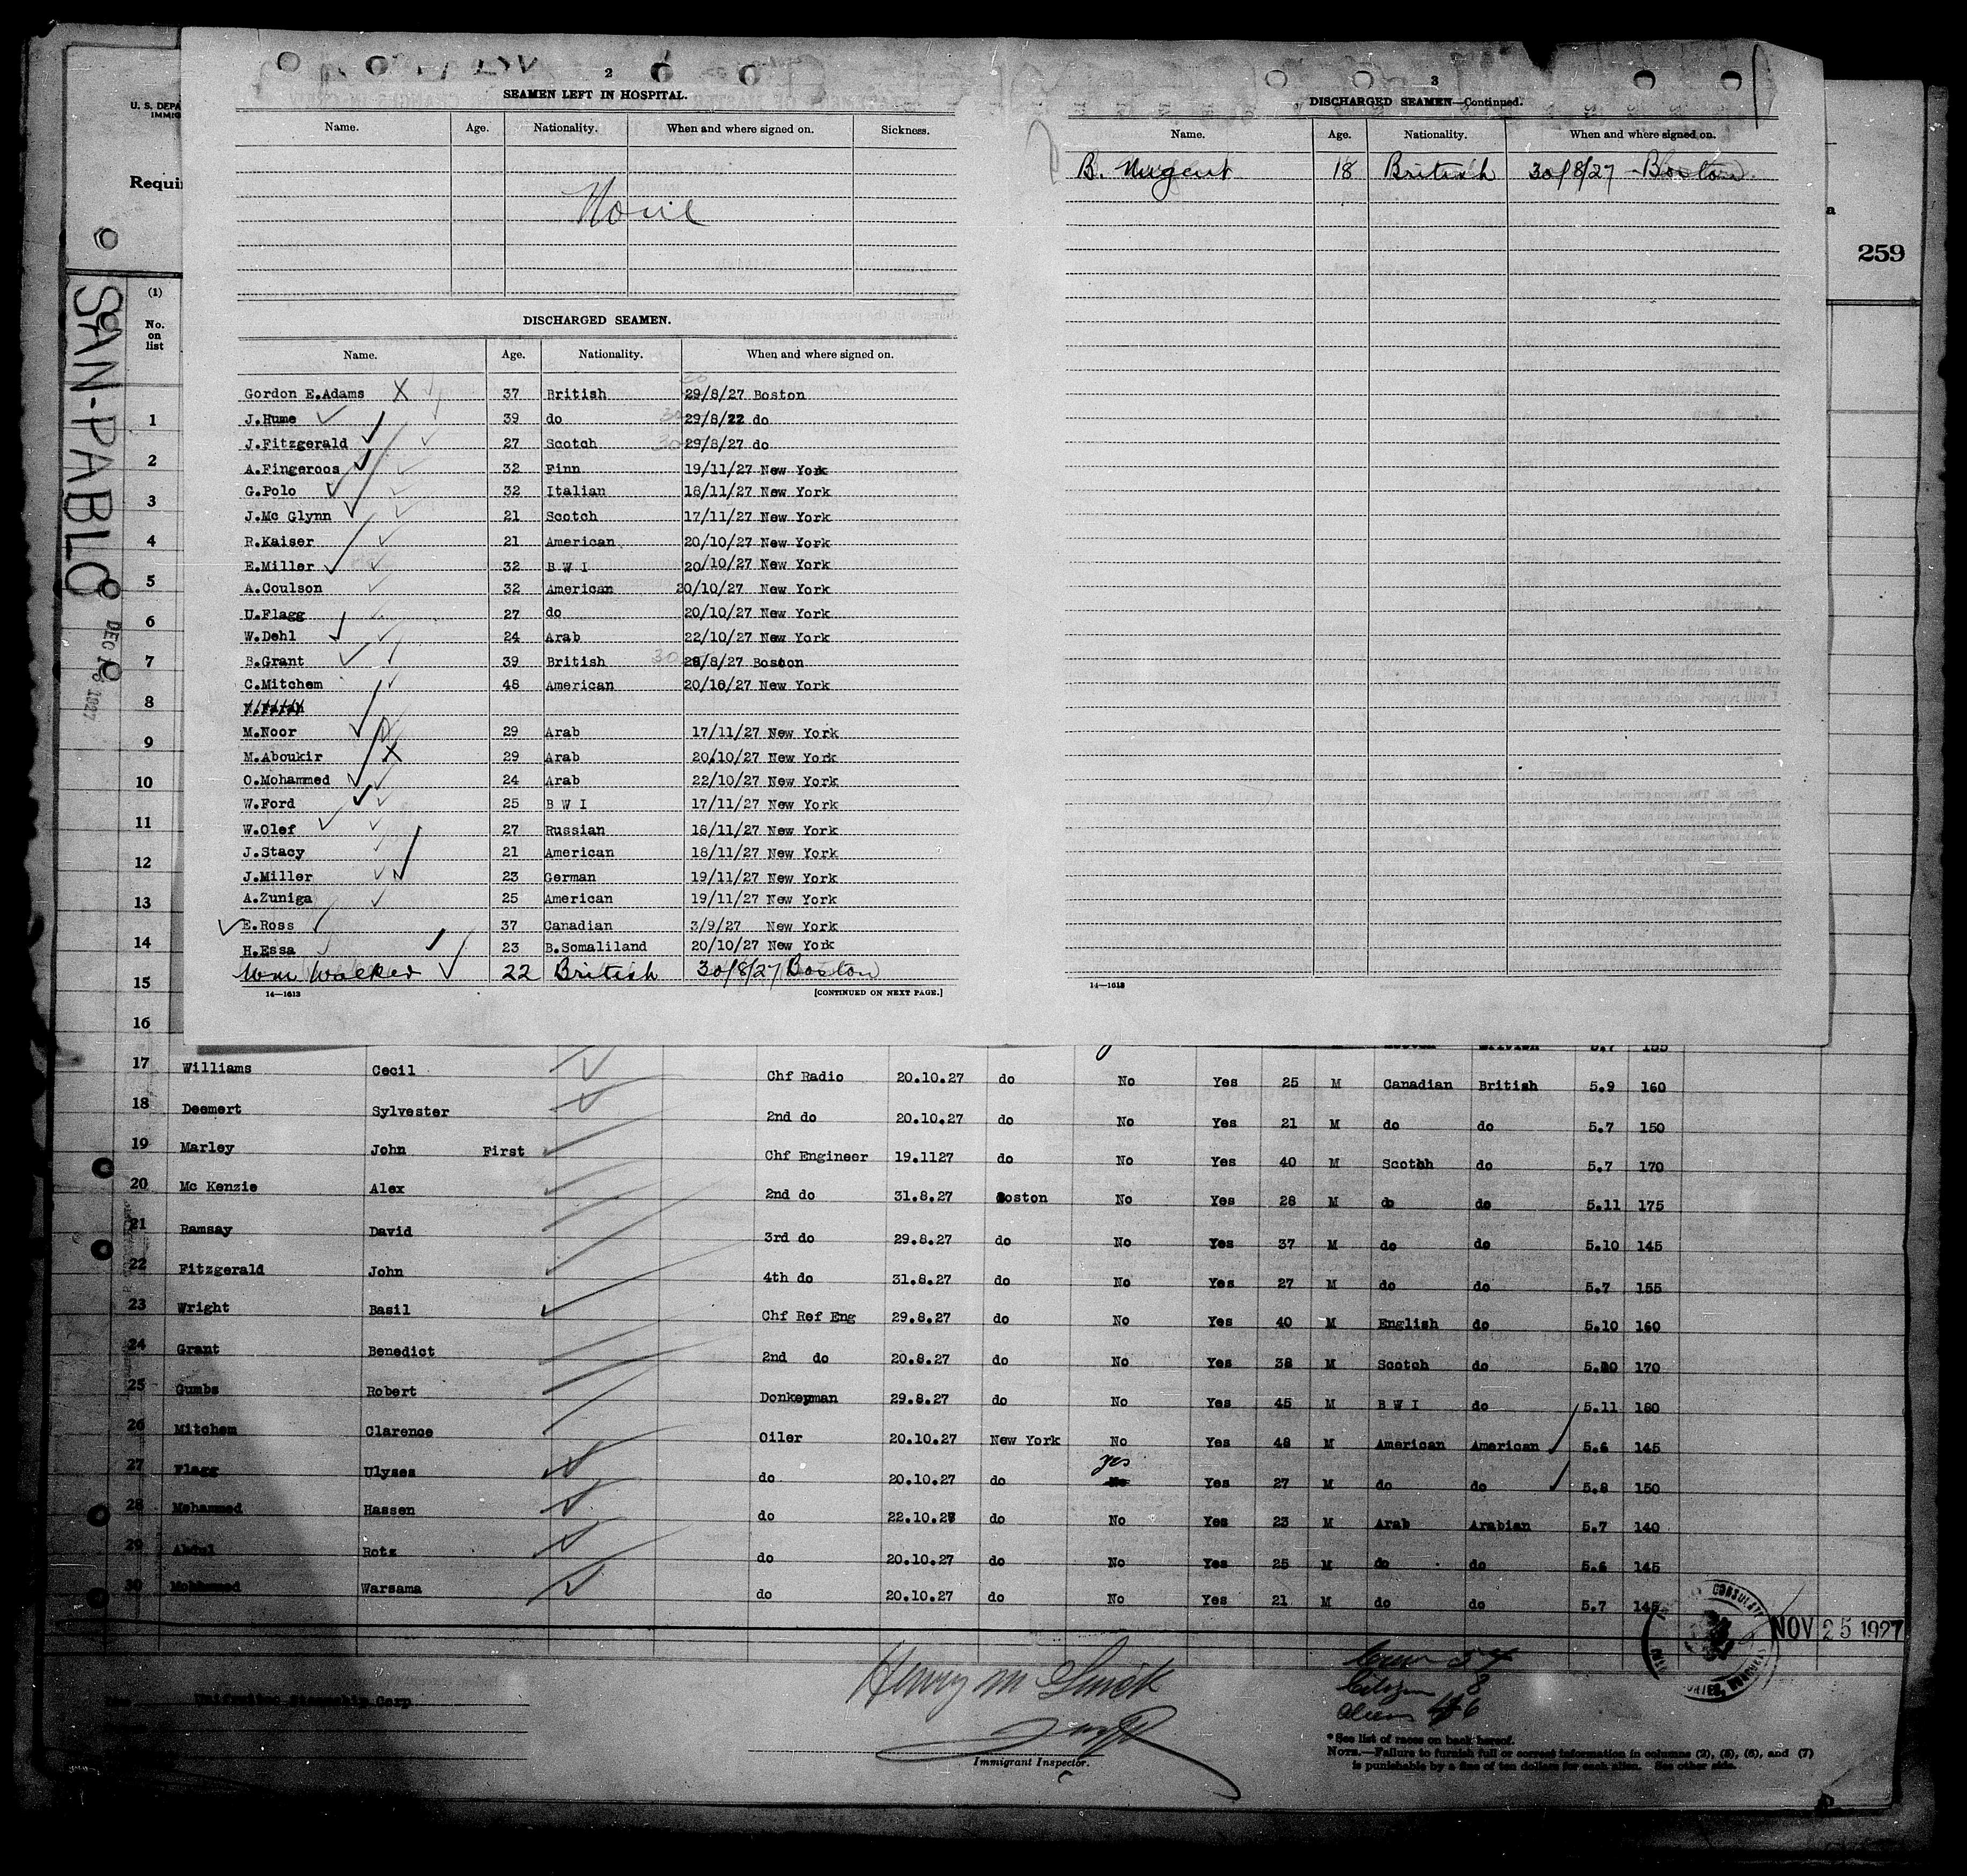 2
SEAMEN LEFT IN HOSPITAL.
Name. Age. Nationality. When and where signed on. Sickness.
None
DISCHARGED SEAMEN.
Name. Age. Nationality. When and where signed on.
Gordon E.Adams 37 British 29/8/27 Boston
J.Hume 39 do 29/8/22 do
J.Fitzgerald 27 Scotch 29/8/27 do
A.Fingeroos 32 Finn 19/11/27 New York
G.Polo 32 Italian 18/11/27 New York
J.Mc Glynn 21 Scotch 17/11/27 New York
R.Kaiser 21 American 20/10/27 New York
E.Miller 32 B W I 20/10/27 New York
A.Coulson 32 American 20/10/27 New York
U.Flagg 27 do 20/10/27 New York
W.Dehl 24 Arab 22/10/27 New York
B.Grant 39 British 29/8/27 Boston
C.Mitchem 48 American 20/10/27 New York
M.Noor 29 Arab 17/11/27 New York
M.Aboukir 29 Arab 20/10/27 New York
O.Mohammed 24 Arab 22/10/27 New York
W.Ford 25 B W I 17/11/27 New York
W.Olef 27 Russian 18/11/27 New York
J.Stacy 21 American 18/11/27 New York
J.Miller 23 German 19/11/27 New York
A.Zuniga 25 American 19/11/27 New York
E.Ross 37 Canadian 3/9/27 New York
H.Essa 23 B.Somaliland 20/10/27 New York
Wm Walker 22 British 30/8/27 Boston
14—1613 [CONTINUED ON NEXT PAGE.]
3
DISCHARGED SEAMEN—Continued.
Name. Age. Nationality. When and where signed on.
B. Nugent 18 British 30/8/27 - Boston
14—1613
U. S. DEPA
IMMIG
Requir
259
SAN-PABLO
DEC 1927
(1)
No.
on
list
1
2
3
4
5
6
7
8
9
10
11
12
13
14
15
16
17 Williams Cecil Chf Radio 20.10.27 do No Yes 25 M Canadian British 5.9 160
18 Deemert Sylvester 2nd do 20.10.27 do No Yes 21 M do do 5.7 150
19 Marley John First Chf Engineer 19.1127 do No Yes 40 M Scotch do 5.7 170
20 Mc Kenzie Alex 2nd do 31.8.27 Boston No Yes 28 M do do 5.11 175
21 Ramsay David 3rd do 29.8.27 do No Yes 37 M do do 5.10 145
22 Fitzgerald John 4th do 31.8.27 do No Yes 27 M do do 5.7 155
23 Wright Basil Chf Ref Eng 29.8.27 do No Yes 40 M English do 5.10 160
24 Grant Benedict 2nd do 20.8.27 do No Yes 38 M Scotch do 170
25 Gumbs Robert Donkeyman 29.8.27 do No Yes 45 M B W I do 5.11 180
26 Mitchem Clarence Oiler 20.10.27 New York No Yes 48 M American American 5.6 145
27 Flagg Ulyses do 20.10.27 do yes Yes 27 M do do 5.8 150
28 Mohammed Hassen do 22.10.27 do No Yes 23 M Arab Arabian 5.7 140
29 Abdul Rotz do 20.10.27 do No Yes 25 M do do 5.6 145
30 Mohammed Warsama do 20.10.27 do No Yes 21 M do do 5.7 145
NOV 25 1927
Unifruitco Steamship Corp
Crew 54
Citizen 8
Aliens 46
Immigrant Inspector.
* See list of races on back hereof.
NOTE.—Failure to furnish full or correct information in columns (2), (5), (6), and (7)
is punishable by a fine of ten dollars for each alien. See other side.